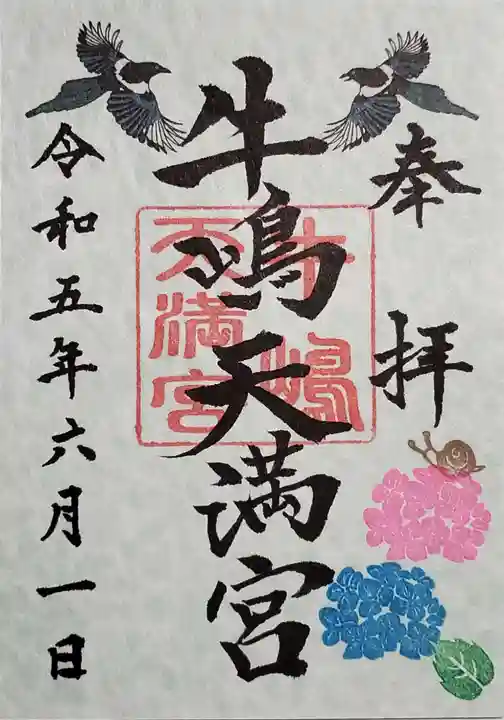 奉拝
牛嶋天満宮
牛嶋天満宮
令和五年六月一日